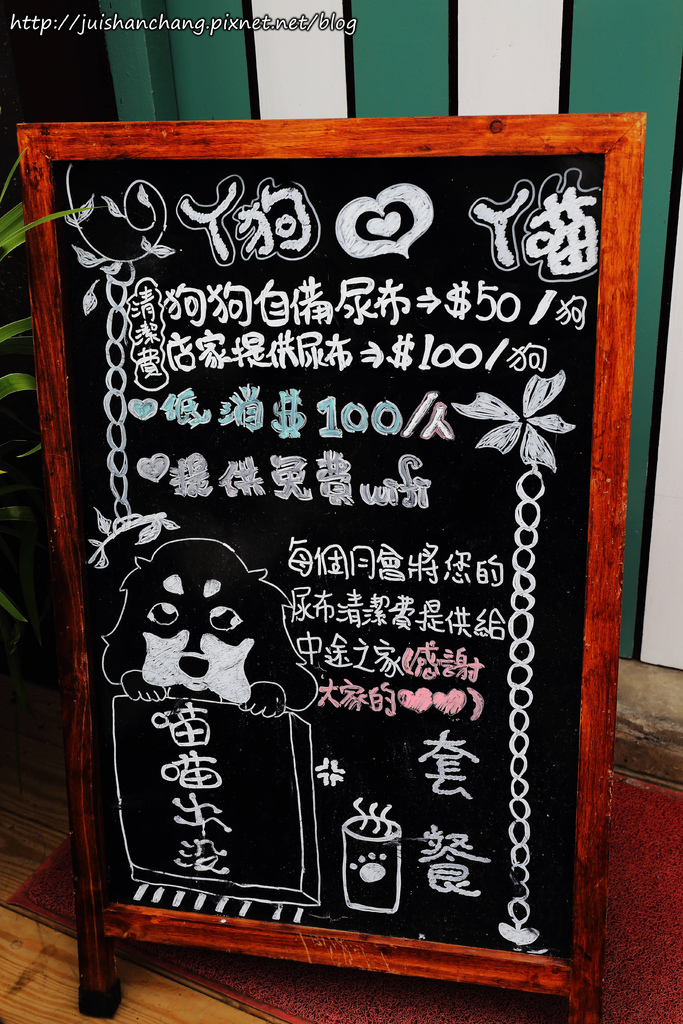 http://juishanchang.pixnet.net/blog
ㄚ狗 ㄚ喵
清潔費
狗狗自備尿布→$50/狗
店家提供尿布→$100/狗
低消$100/人
提供免費wifi
每個月會將您的
尿布清潔費提供給
中途之家(感謝
大家的)
套餐
喵喵